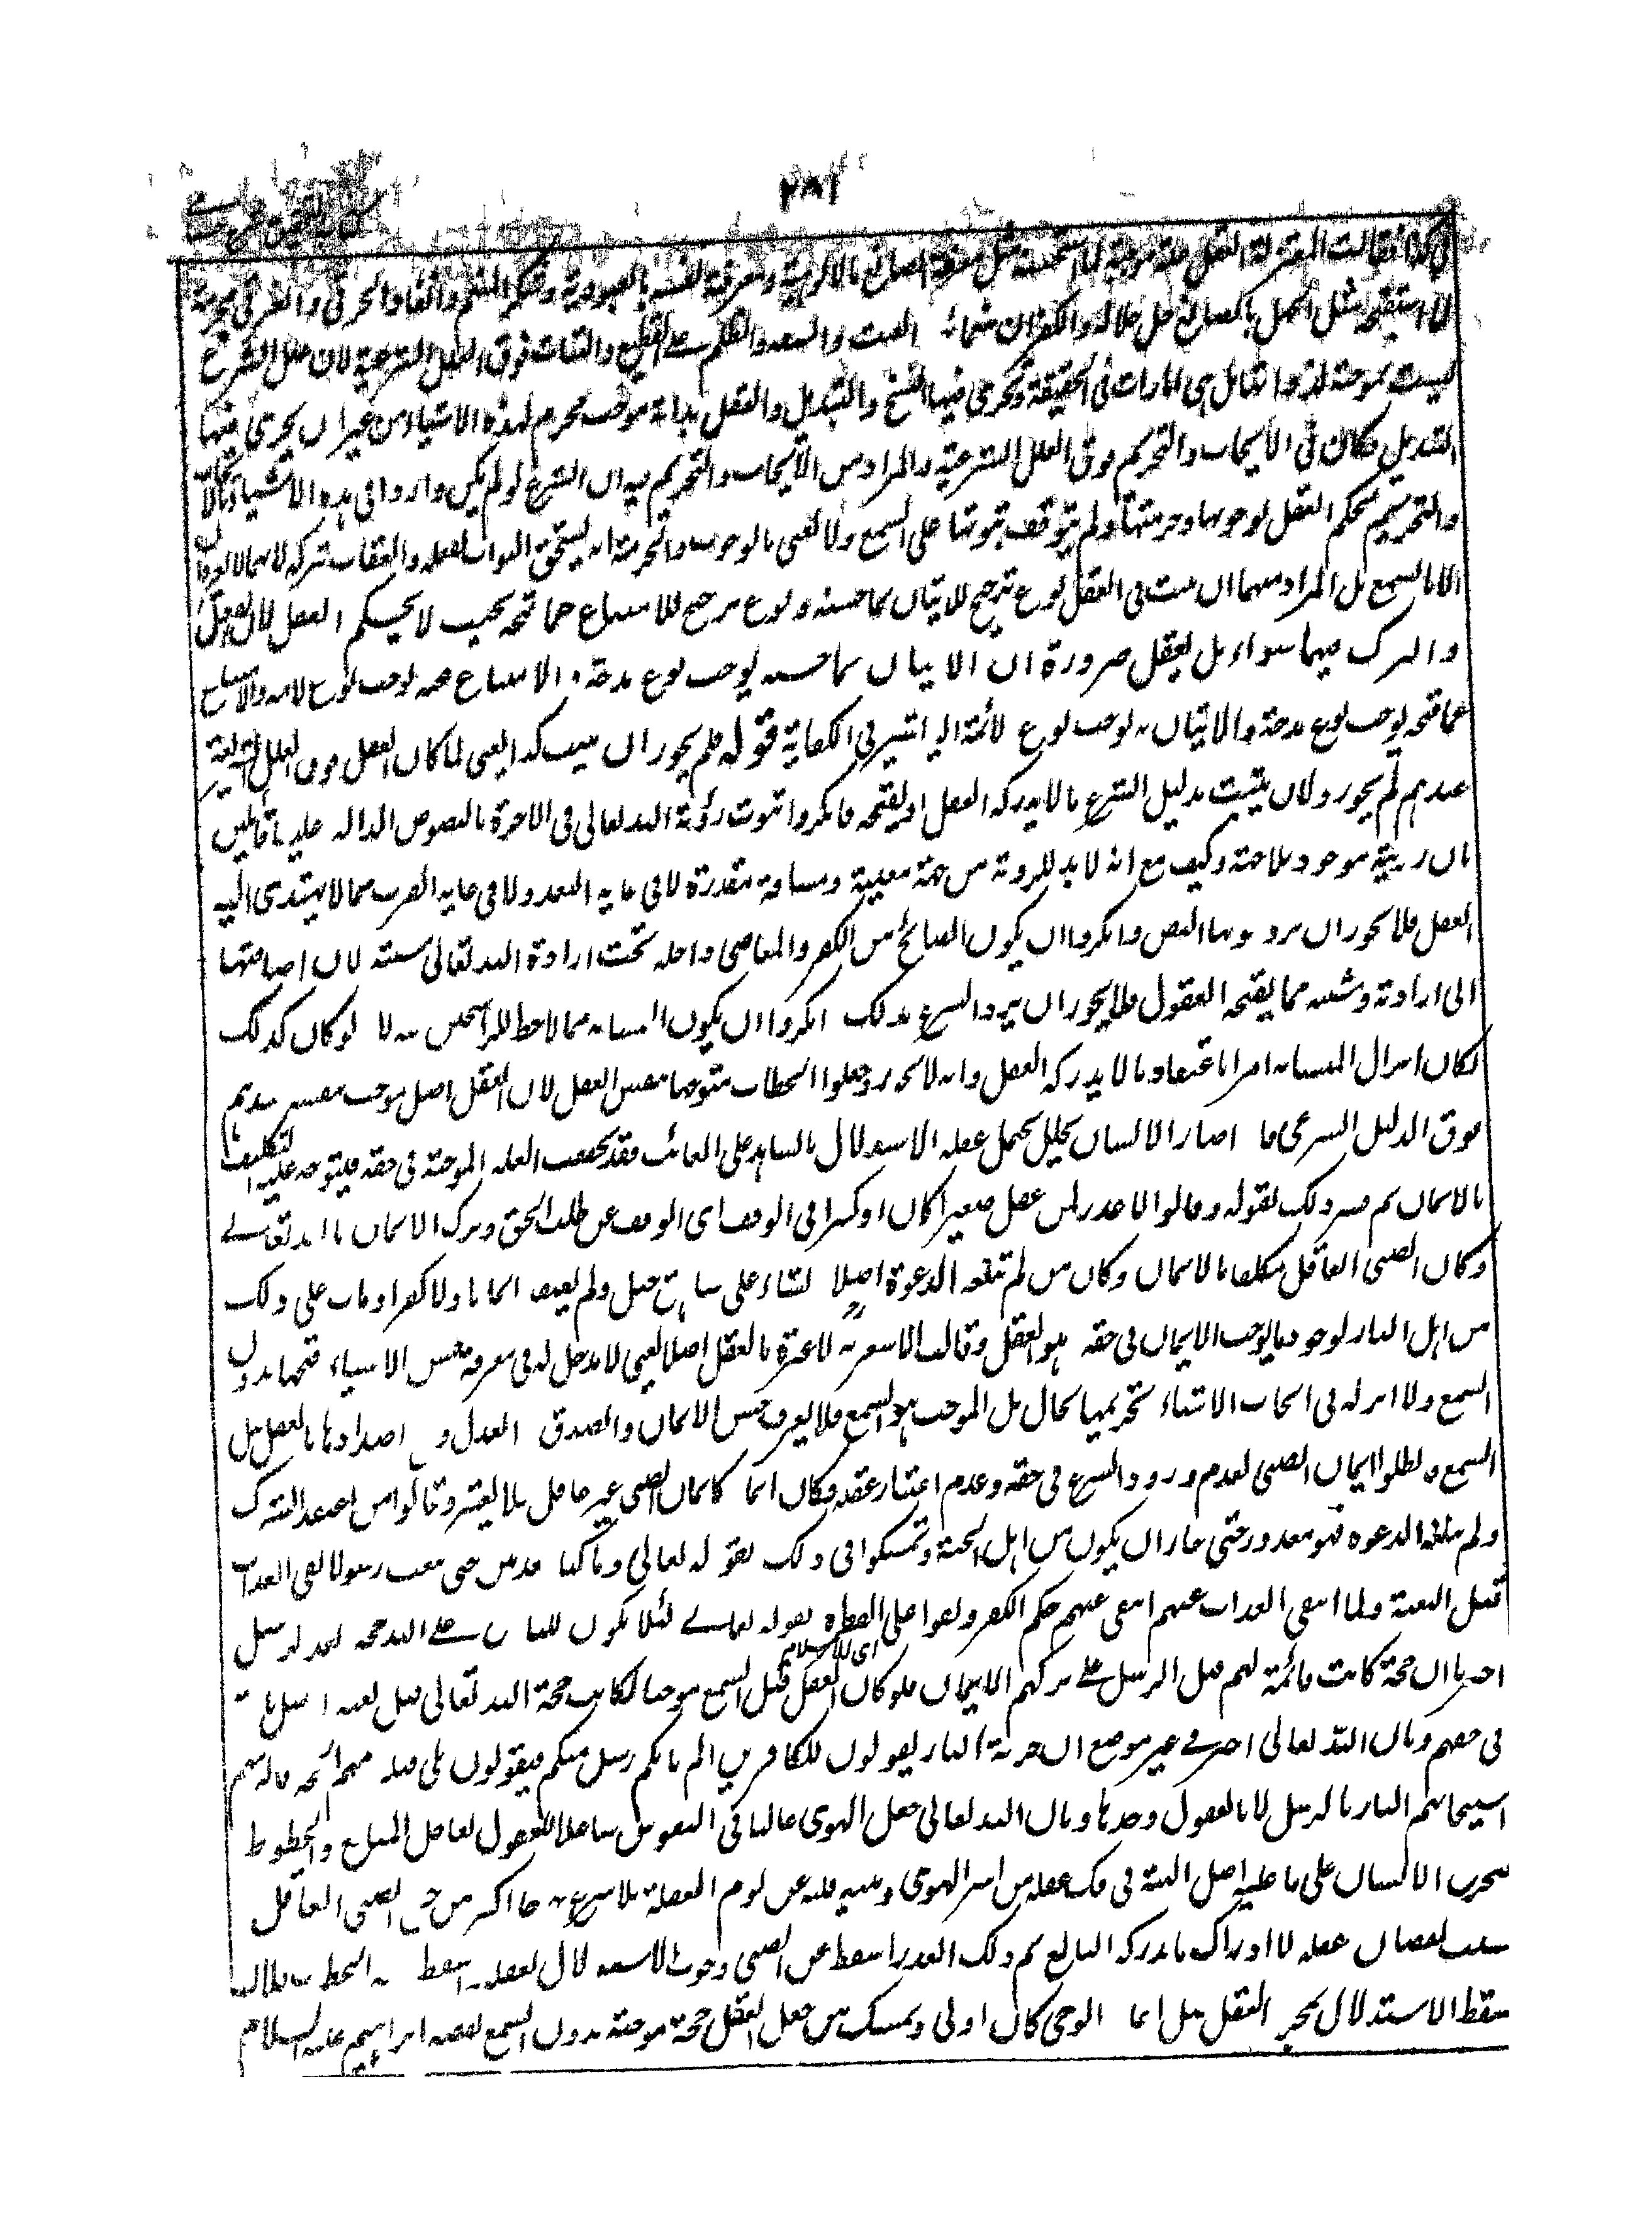 ٢٨٢
فقالت المعتزلة العقل علة موجبة لما استحسنه مثل معرفة الصانع بالالوهية ومعرفة نفسه بالعبودية وشكر المنعم وانقاذ الحرقى والغرقى محرمة
لما استقبحه مثل الجهل بالصانع جل جلاله والكفران بنعمائه العبث والسفه والظلم على القطع والثبات فوق العلل الشرعية لان علل الشرع
ليست بموجبة لذواتها بل هي امارات فى الحقيقة وتجرى فيها النسخ والتبديل والعقل بذاته موجب محرم لهذه الاشياء من غير ان يجرى فيها
التبديل فكان فى الايجاب والتحريم فوق العلل الشرعية والمراد من الايجاب والتحريم فيه ان الشرع لو لم يكن واردا فى هذه الاشياء بالايجاب
والتحريم لحكم العقل بوجوبها وحرمتها ولم يتوقف ثبوتها على السمع ولا نعنى بالوجوب والحرمة انه يستحق الثواب بفعله والعقاب بتركه لانهما لا يعرفان
الا بالسمع بل المراد منهما ان يثبت فى العقل نوع ترجيح للاتيان بما حسنه ونوع ترجيح للامتناع عما قبحه بحيث لا يحكم العقل لان الفعل
والترك فيهما سواء بل يعقل ضرورة ان الاتيان بما حسنه يوجب نوع مدحة والامتناع عنه يوجب نوع لائمة والامتناع
عما قبحه يوجب نوع مدحة والاتيان به يوجب نوع لائمة اليه اشير فى الكفاية قوله فلم يجوزوا ان يثبت كذا يعنى لما كان العقل فوق العلل الشرعية
عندهم لم يجوزوا ان يثبت بدليل الشرع ما لا يدركه العقل او يقبحه فانكروا ثبوت رؤية الله تعالى فى الاخرة بالنصوص الدالة عليه قائلين
بان رؤية موجود بلا جهة وكيف مع انه لا بد للرؤية من جهة معينة ومسافة مقدرة لا فى غاية البعد ولا فى غاية القرب مما لا يهتدى اليه
العقل فلا يجوز ان يرد بها النص وانكروا ان يكون القبائح من الكفر والمعاصى داخلة تحت ارادة الله تعالى ومشيته لان اضافتها
الى ارادته ومشيته مما يقبحه العقول فلا يجوز ان يرد الشرع بذلك انكروا ان يكون المتشابه مما لا حظ للراسخين فيه لا لو كان كذلك
لكان انزال المتشابه امرا باعتقاد ما لا يدركه العقل وانه لا يجوز وجعلوا الخطاب متوجها بنفس العقل لان العقل اصل موجب بنفسه عندهم
فوق الدليل الشرعى فا اصار الانسان بحيث يحتمل عقله الاستدلال بالشاهد على الغائب فقد تحققت العلة الموجبة فى حقه فيتوجه عليه التكليف
بالايمان ثم فسر ذلك بقوله وقالوا لا عذر لمن عقل صغيرا كان او كبيرا فى الوقف اى الوقف عن طلب الحق وترك الايمان بالله تعالى
وكان الصبى العاقل مكلفا بالايمان وكان من لم تبلغه الدعوة اصلا نشأ على شاهق جبل ولم يعتقد ايمانا ولا كفرا ومات على ذلك
من اهل النار لوجود ما يوجب الايمان فى حقه هو العقل وقالت الاشعرية لا عبرة بالعقل اصلا يعنى لا مدخل له فى معرفة حسن الاشياء وقبحها بدون
السمع ولا اثر له فى ايجاب الاشياء وتحريمها بحال بل الموجب هو السمع فلا يعرف حسن الايمان والصدق العدل و اضدادها بالعقل بل
السمع وابطلوا ايمان الصبى لعدم ورود الشرع فى حقه وعدم اعتبار عقله فكان ايما كايمان الصبى غير عاقل فلا يعتبر وقالوا من اعتقد الشرك
ولم تبلغه الدعوة فهو معذور حتى جاز ان يكون من اهل الجنة وتمسكوا فى ذلك بقوله تعالى وما كنا معذبين حتى نبعث رسولا نفى العذاب
قبل البعثة ولما انتفى العذاب عنهم انتفى عنهم حكم الكفر وبقوا على الفطرة بقوله تعالى لئلا يكون للناس على الله حجة بعد الرسل
اى الاسلام
اخبر بان حجة كانت قائمة لهم قبل الرسل على تركهم الايمان فلو كان العقل قبل السمع موجبا لكانت حجة الله تعالى قبل بعثة الرسل
فى حقهم وبان الله تعالى اخبر فى غير موضع ان خزنة النار يقولون للكافرين الم يأتكم رسل منكم فيقولون بلى فيلزمهم الحجة فانهم
استيجابهم النار بالرسل لا بالعقول وحدها وبان الله تعالى جعل الهوى غالبا فى النفوس شاغلا للعقول بعاجل المنافع والحظوظ
الانسان على ما عليه اصل البنية فى فك عقله من اسر الهوى وتنبيه قلبه عن نوم الغفلة بلا شرع اكثر من الصبى العاقل
بسبب نقصان عقله لا ادراك ما يدركه البالغ ثم ذلك العذر اسقط عن الصبى وجوب الاستدلال بعقله اسقط الخطاب
سقط الاستدلال بمجرد العقل قبل الوحى كان اولى وتمسك من جعل العقل حجة موجبة بدون السمع بقصة ابراهيم عليه السلام